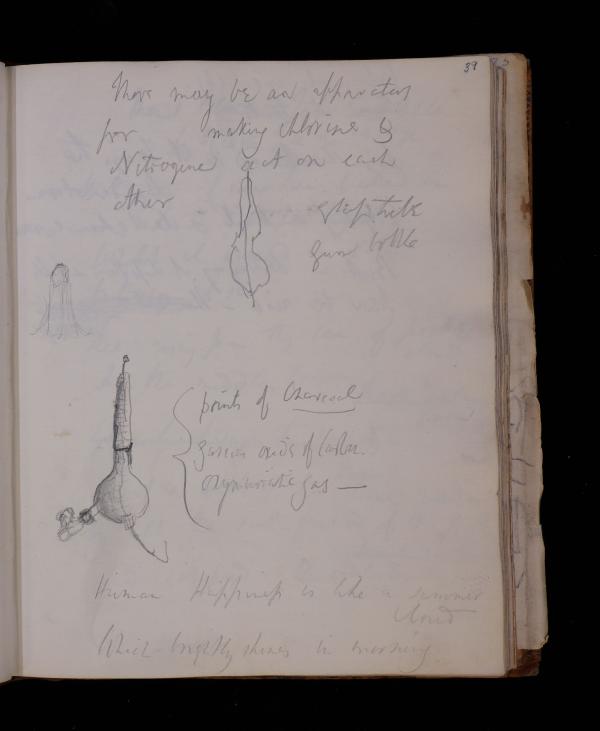 39
There may be an apparatus
for making chlorine &
Nitrogene act on each
other
glass tube
gum bottle
points of Charcoal
gaseous oxide of Carbon.
Oxymuriatic gas —
Human Happiness is like a summer
Cloud
Which brightly shines in morning